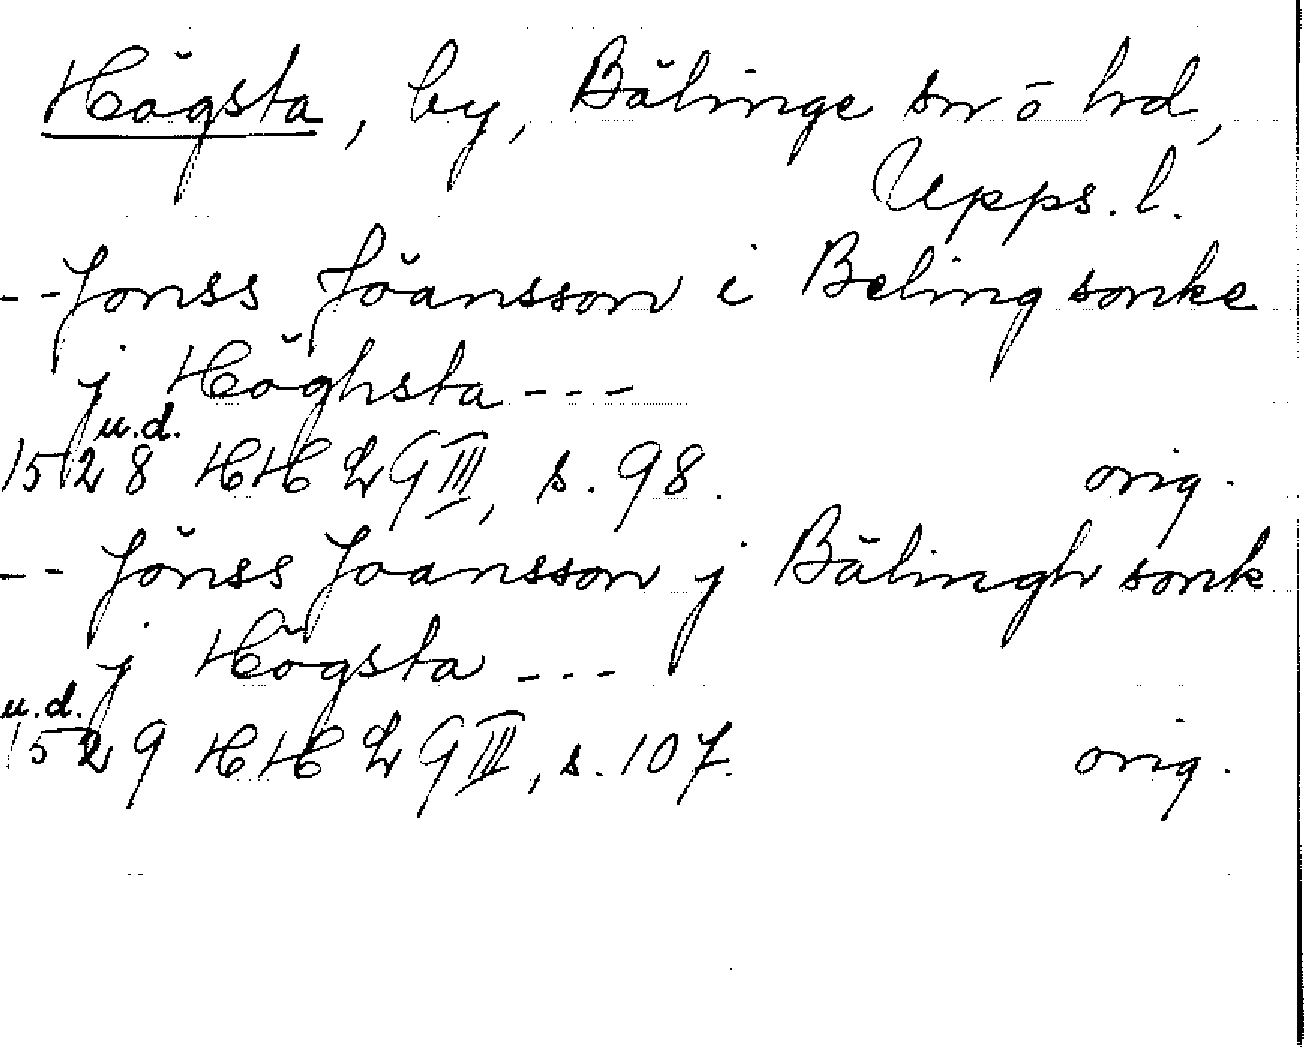 Högsta, by, Bälinge sn o hd,
Upps. l.
-- Jonss Jöansson i Beling sonke
j Höghsta ---
u.d.
1528 HH 29 III, s. 98. orig.
-- Jönss Joansson j Bälingh sonk
j Högsta ---
u.d.
1529 HH 29 III, s. 107. orig.